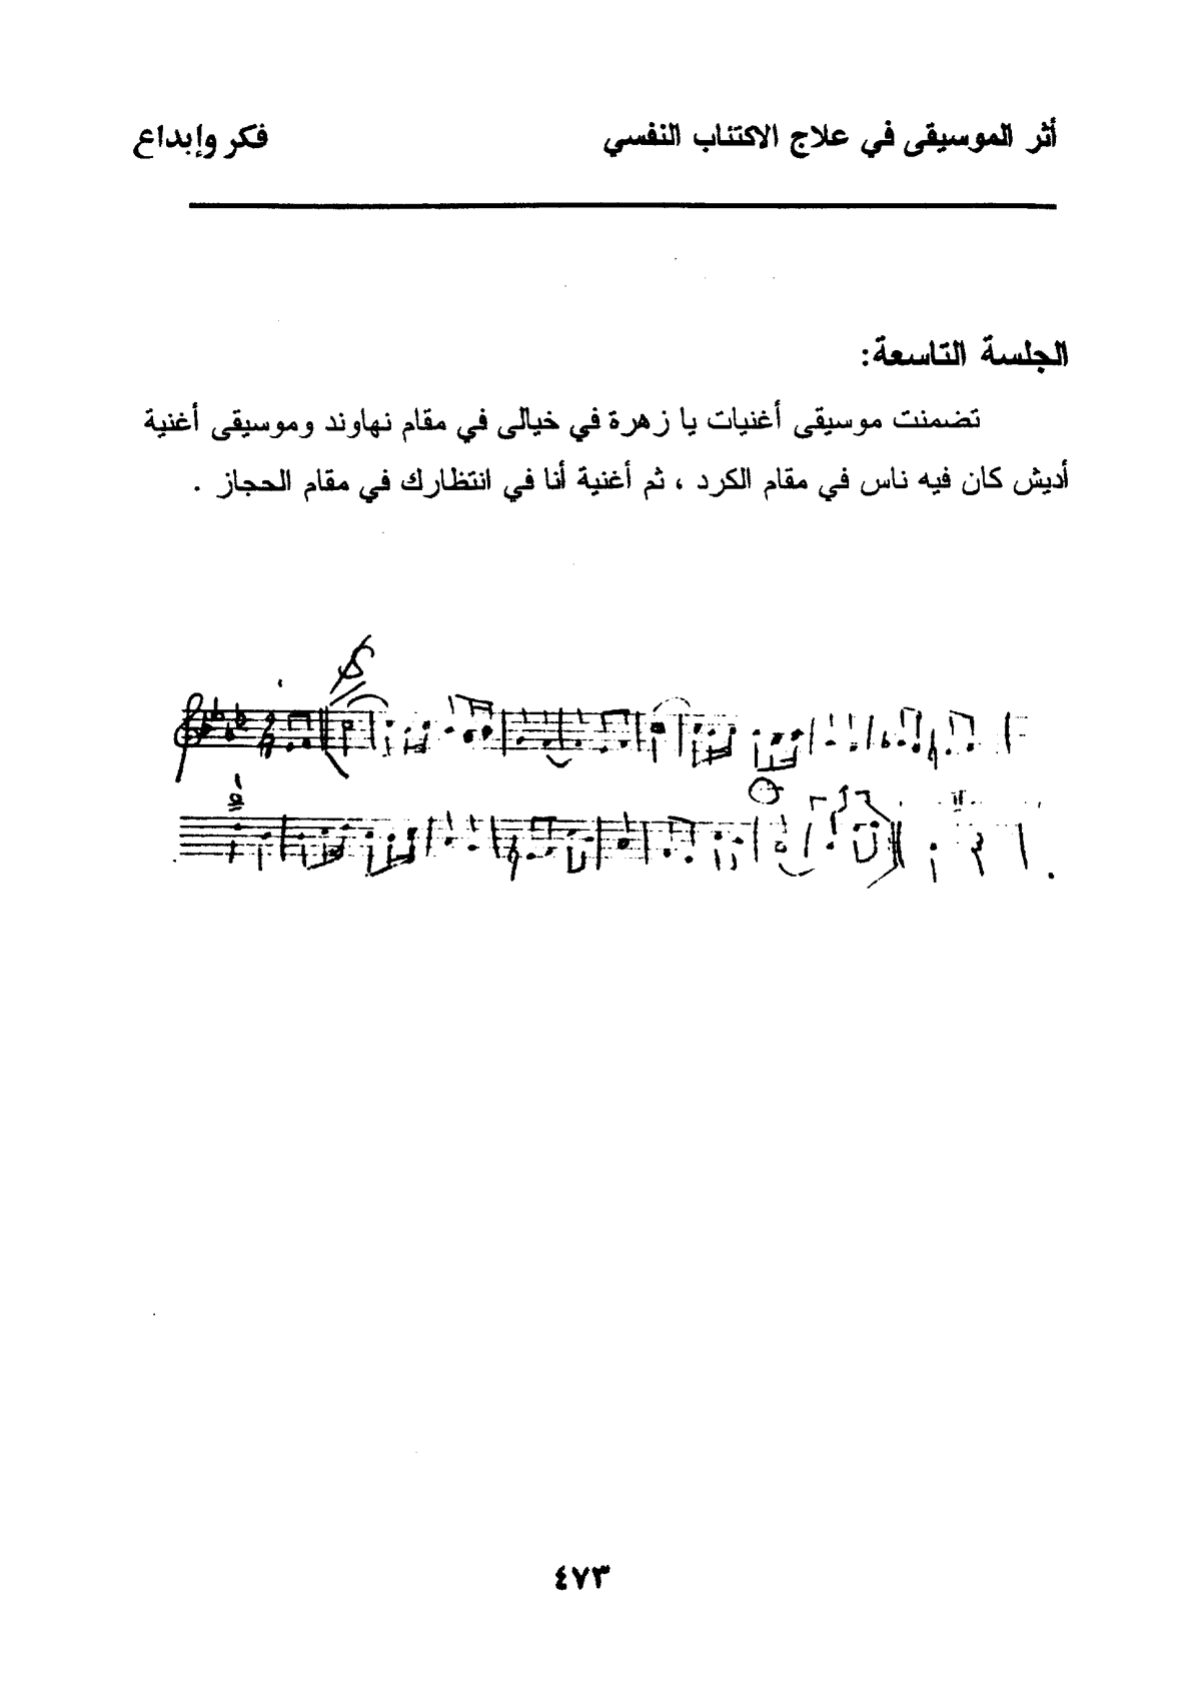 أثر الموسيقى في علاج الاكتئاب النفسي فكر وإبداع
الجلسة التاسعة:
تضمنت موسيقى أغنيات يا زهرة في خيالى في مقام نهاوند وموسيقى أغنية
أديش كان فيه ناس في مقام الكرد ، ثم أغنية أنا في انتظارك في مقام الحجاز .
٤٧٣